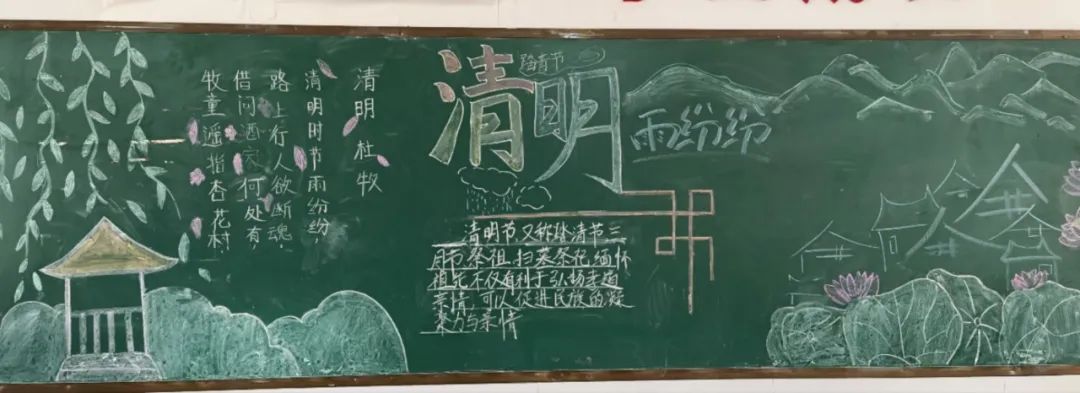 清明 杜牧
清明时节雨纷纷,
路上行人欲断魂
借问酒家何处有
牧童遥指杏花村
踏青节
清明
雨纷纷
清明节又称踏清节三
月节祭祖.扫墓祭祀缅怀
祖先不仅有利于弘扬孝道
亲情.可以促进民族的凝
聚力与亲情